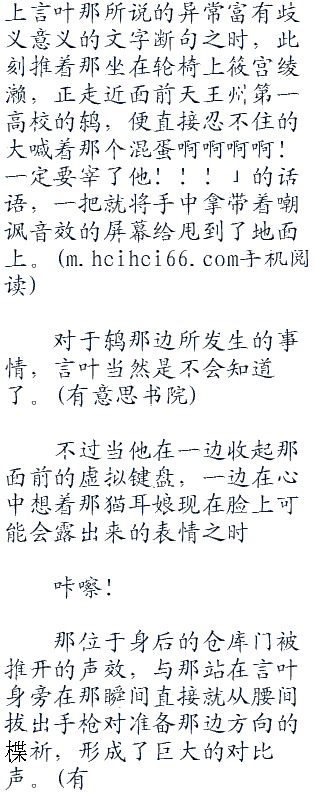 上言叶那所说的异常富有歧
义意义的文字断句之时，此
刻推着那坐在轮椅上筱宫绫
濑，正走近面前天王州第一
高校的鸫，便直接忍不住的
大喊着那个混蛋啊啊啊啊！
一定要宰了他！！！」的话
语，一把就将手中拿带着嘲
讽音效的屏幕给甩到了地面
上。(m.hcihci66.com手机阅
读)
对于鸫那边所发生的事
情，言叶当然是不会知道
了。(有意思书院)
不过当他在一边收起那
面前的虚拟键盘，一边在心
中想着那猫耳娘现在脸上可
能会露出来的表情之时
咔嚓！
那位于身后的仓库门被
推开的声效，与那站在言叶
身旁在那瞬间直接就从腰间
拔出手枪对准备那边方向的
楪祈，形成了巨大的对比
声。(有